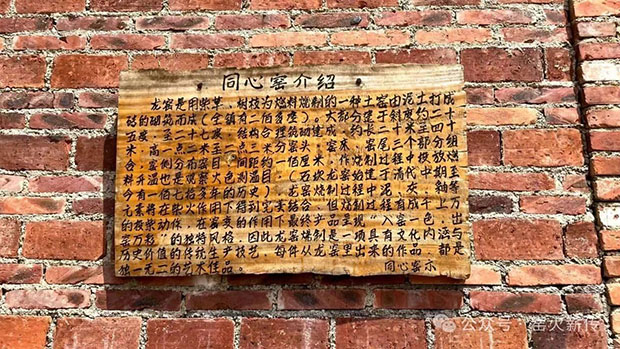 同心窑介绍
龙窑是用柴草、树枝为燃料烧制的一种土窑由泥土打成
砖的砌筑而成（全镇有二佰多座）。大部分建于斜度约二十
五度至二十七度，结构合理筑建成，约长二十米至四十
米，高二点二米至二点三米分窑头、窑床、窑尾三个部分组
合，窑侧分布窑目，间距约一佰厘米，作烧窑过程中投放燃
料升温也是观察火色测温的。（万坎龙窑始建于清代中期至
今也一佰七拾多年的历史），龙窑烧制过程中泥、灰、釉等
元素将在柴火作用下得到完美结合，但烧制过程有成千上万
的投柴动作，在窑变的作用下最终产品呈现“入窑一色，出
窑万彩”的独特风格，因此龙窑烧制是一项具有文化内涵与
历史价值的传统生产技艺，每件从龙窑里出来的作品，都是
独一无二的艺术佳品。
同心窑示
公众号·窑火新传